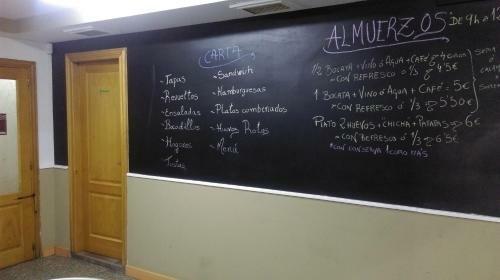 CARTA
~ Tapas
~ Revueltos
~ Ensaladas
~ Bocadillos
~ Tostas
~ Sandwich
~ Hamburguesas
~ Platos combinados
~ Huevos Rotos
~ Menú
ALMUERZOS DE 9h A
1/2 BOCATA + VINO Ó AGUA + CAFÉ 4 EUROS
~ CON REFRESCO Ó 1/3 4'5€
1 BOCATA + VINO Ó AGUA + CAFÉ: 5€
~ CON REFRESCO Ó 1/3 5'50€
PLATO 2 HUEVOS + CHICHA + PATATAS 6€
~ CON REFRESCO Ó 1/3 6'5€
*CON CONSERVA 1 EURO MÁS